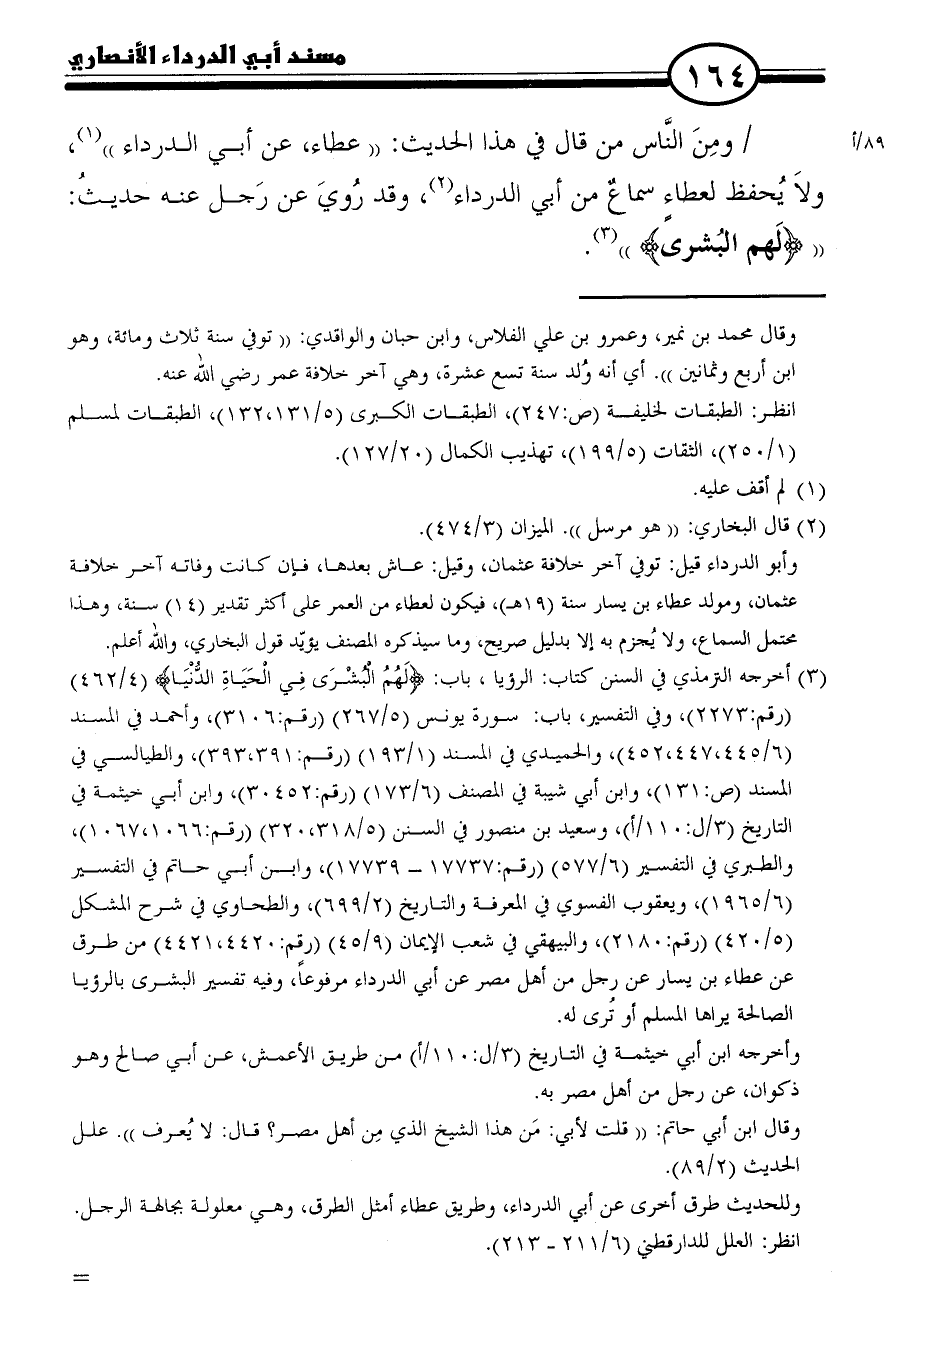 مسند أبي الدرداء الأنصاري
١٦٤
٨٩/أ
/ ومِنَ النَّاس من قال في هذا الحديث: (( عطاء، عن أبي الدرداء ))(١)،
ولاَ يُحفظ لعطاءٍ سماعٌ من أبي الدرداء(٢)، وقد رُويَ عن رَجل عنه حديثُ:
(( ﴿لَهم البُشرى﴾ ))(٣).
وقال محمد بن نمير، وعمرو بن علي الفلاس، وابن حبان والواقدي: (( توفي سنة ثلاث ومائة، وهو
ابن أربع وثمانين )). أي أنه وُلد سنة تسع عشرة، وهي آخر خلافة عمر رضي الله عنه.
انظر: الطبقات لخليفة (ص:٢٤٧)، الطبقات الكبرى (١٣١/٥،١٣٢)، الطبقات لمسلم
(٢٥٠/١)، الثقات (١٩٩/٥)، تهذيب الكمال (١٢٧/٢٠).
(١) لم أقف عليه.
(٢) قال البخاري: (( هو مرسل )). الميزان (٤٧٤/٣).
وأبو الدرداء قيل: توفي آخر خلافة عثمان، وقيل: عاش بعدها، فإن كانت وفاته آخر خلافة
عثمان، ومولد عطاء بن يسار سنة (١٩هـ)، فيكون لعطاء من العمر على أكثر تقدير (١٤) سنة، وهذا
محتمل السماع، ولا يُجزم به إلا بدليل صريح، وما سيذكره المصنف يؤيّد قول البخاري، والله أعلم.
(٣) أخرجه الترمذي في السنن كتاب: الرؤيا ، باب: ﴿لَهُمُ الْبُشْرَى فِي الْحَيَاةِ الدُّنْيَا﴾ (٤٦٢/٤)
(رقم:٢٢٧٣)، وفي التفسير، باب: سورة يونس (٢٦٧/٥) (رقم:٣١٠٦)، وأحمد في المسند
(٤٤٥/٦،٤٤٧،٤٥٢)، والحميدي في المسند (١٩٣/١) (رقم:٣٩١،٣٩٣)، والطيالسي في
المسند (ص:١٣١)، وابن أبي شيبة في المصنف (١٧٣/٦) (رقم:٣٠٤٥٢)، وابن أبي خيثمة في
التاريخ (٣/ل:١١٠/أ)، وسعيد بن منصور في السنن (٣١٨/٥،٣٢٠) (رقم:١٠٦٦،١٠٦٧)،
والطبري في التفسير (٥٧٧/٦) (رقم:١٧٧٣٧ – ١٧٧٣٩)، وابن أبي حاتم في التفسير
(١٩٦٥/٦)، ويعقوب الفسوي في المعرفة والتاريخ (٦٩٩/٢)، والطحاوي في شرح المشكل
(٤٢٠/٥) (رقم:٢١٨٠)، والبيهقي في شعب الإيمان (٤٥/٩) (رقم:٤٤٢٠،٤٤٢١) من طرق
عن عطاء بن يسار عن رجل من أهل مصر عن أبي الدرداء مرفوعاً، وفيه تفسير البشرى بالرؤيا
الصالحة يراها المسلم أو تُرى له.
وأخرجه ابن أبي خيثمة في التاريخ (٣/ل:١١٠/أ) من طريق الأعمش، عن أبي صالح وهو
ذكوان، عن رجل من أهل مصر به.
وقال ابن أبي حاتم: (( قلت لأبي: مَن هذا الشيخ الذي مِن أهل مصر؟ قال: لا يُعرف )). علل
الحديث (٨٩/٢).
وللحديث طرق أخرى عن أبي الدرداء، وطريق عطاء أمثل الطرق، وهي معلولة بجالهة الرجل.
انظر: العلل للدارقطني (٢١١/٦ – ٢١٣).
=